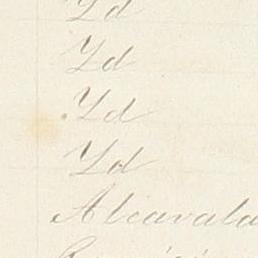 Yd
Yd
Yd
Yd
Alcavala